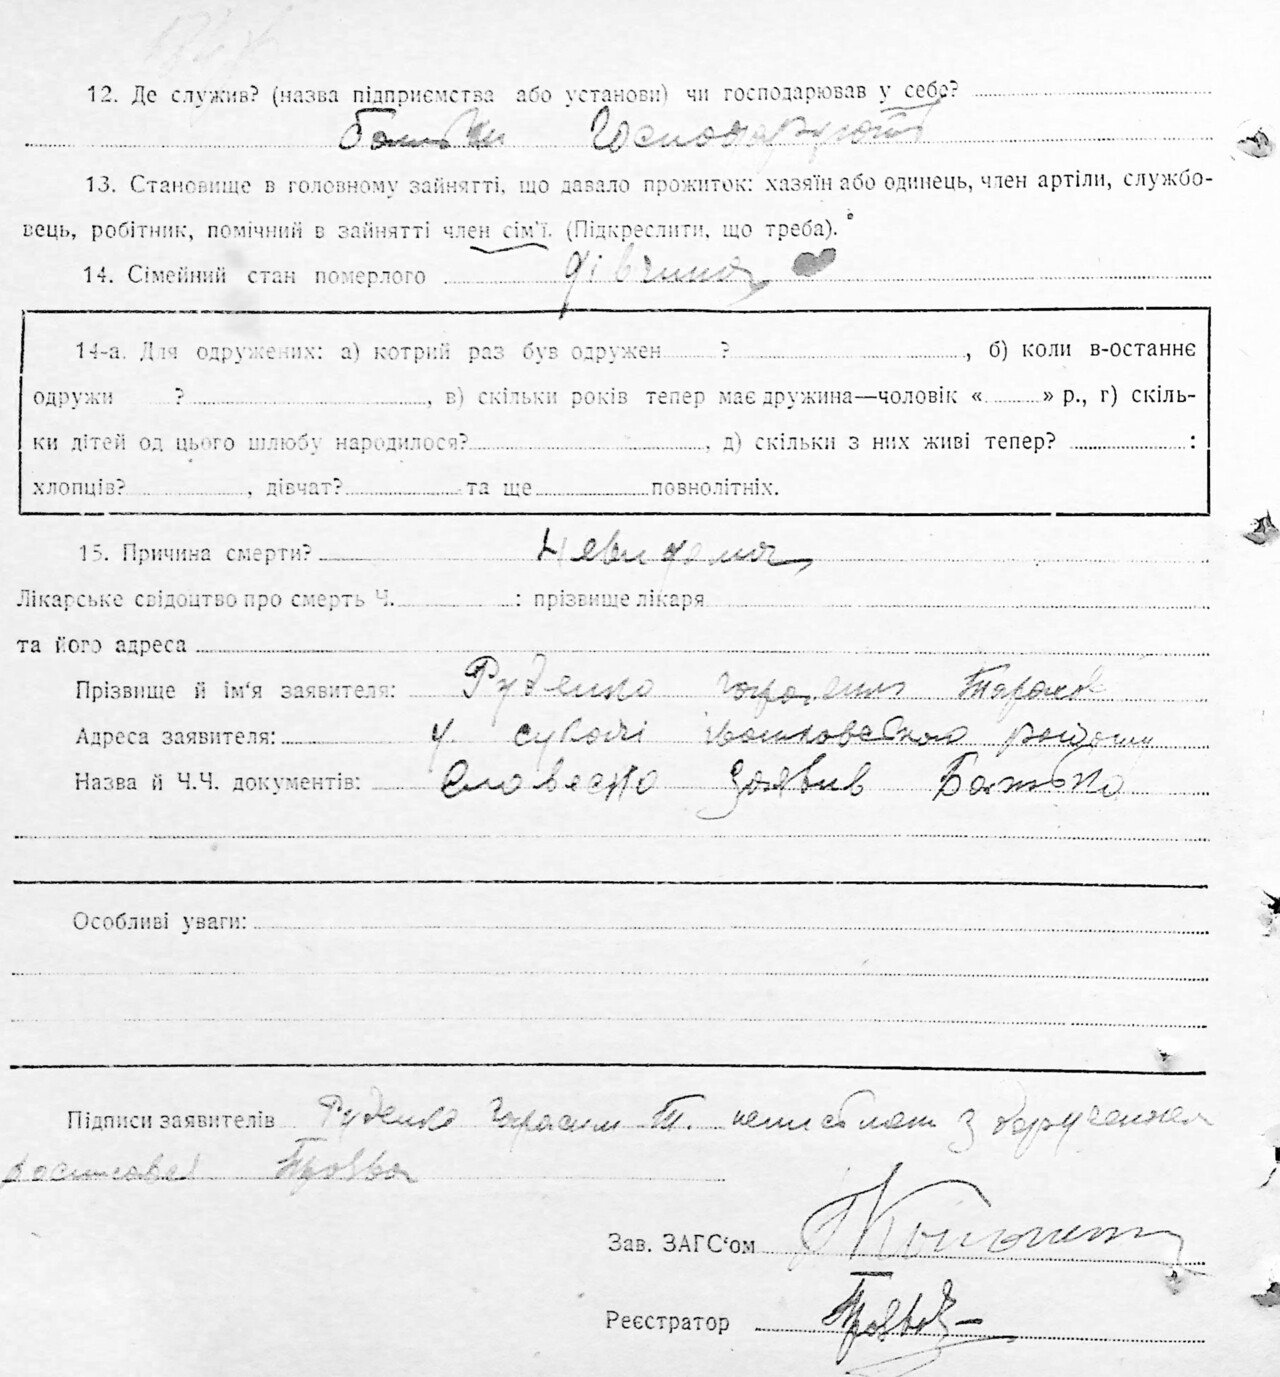 12. Де служив? (назва підприємства або установи) чи господарював у себе?
Батьки Господарують
13. Становище в головному зайнятті, що давало прожиток: хазяїн або одинець, член артіли, службо-
вець, робітник, помічний в зайнятті член сім'ї. (Підкреслити, що треба).
14. Сімейний стан померлого дівчина
14-а. Для одружених: а) котрий раз був одружен ? , б) коли в-останнє
одружи ? , в) скільки років тепер має дружина—чоловік « » р., г) скіль-
ки дітей од цього шлюбу народилося? , д) скільки з них живі тепер? :
хлопців? , дівчат? та ще повнолітніх.
15. Причина смерти? Невидома
Лікарське свідоцтво про смерть Ч. : прізвище лікаря
та його адреса
Прізвище й ім'я заявителя: Руденко Гарасим Тарасов
Адреса заявителя: у
Назва й Ч.Ч. документів: Словесно Заявив Батько
Особливі уваги:
Підписи заявителів Руденко Гарасим Т. з доручення
Зав. ЗАГС'ом
Реєстратор